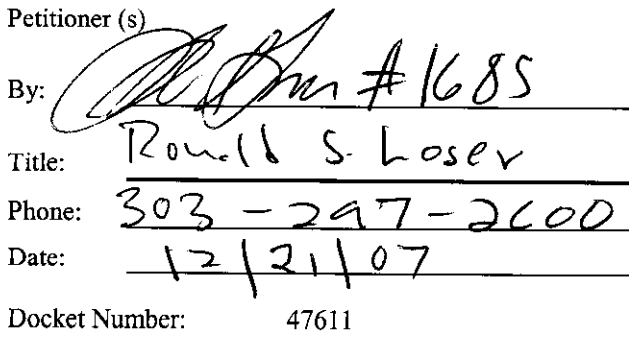 Petitioner (s)
By: #1685
Title: Ronald S. Loser
Phone: 303-297-2600
Date: 12/21/07
Docket Number: 47611